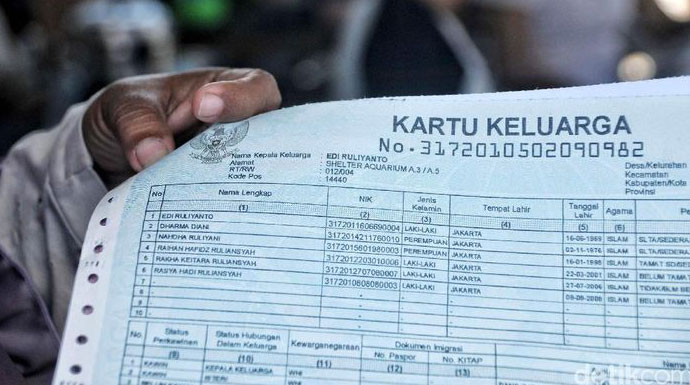 KARTU KELUARGA
No. 3172010502090982
Nama Kepala Keluarga : EDI RULIYANTO
Alamat : SHELTER AQUARIUM A.3 / A.5
RT/RW : 012/004
Kode Pos : 14440
Desa/Kelurahan
Kecamatan
Kabupaten/Kota
Provinsi
No Nama Lengkap NIK Jenis Kelamin Tempat Lahir Tanggal Lahir Agama
(1) (2) (3) (4) (5) (6)
1 EDI RULIYANTO 3172011606690004 LAKI-LAKI JAKARTA 16-06-1969 ISLAM
2 DHARMA DIANI 3172014211760010 PEREMPUAN JAKARTA 02-11-1976 ISLAM
3 NAHDHA RULIYANI PEREMPUAN JAKARTA 16-01-1998 ISLAM
4 RAIHAN HAFIDZ RULIANSYAH LAKI-LAKI JAKARTA 22-03-2001 ISLAM
5 RAKHA KEITARA RULIANSYAH LAKI-LAKI JAKARTA 27-07-2006 ISLAM
6 RASYA HADI RULIANSYAH LAKI-LAKI JAKARTA ISLAM
7
8
9
10
No Status Perkawinan Status Hubungan Dalam Keluarga Kewarganegaraan Dokumen Imigrasi
No. Paspor No. KITAP
(9) (10) (11) (12) (13)
KAWIN KEPALA KELUARGA WNI
ISTERI
detikcom